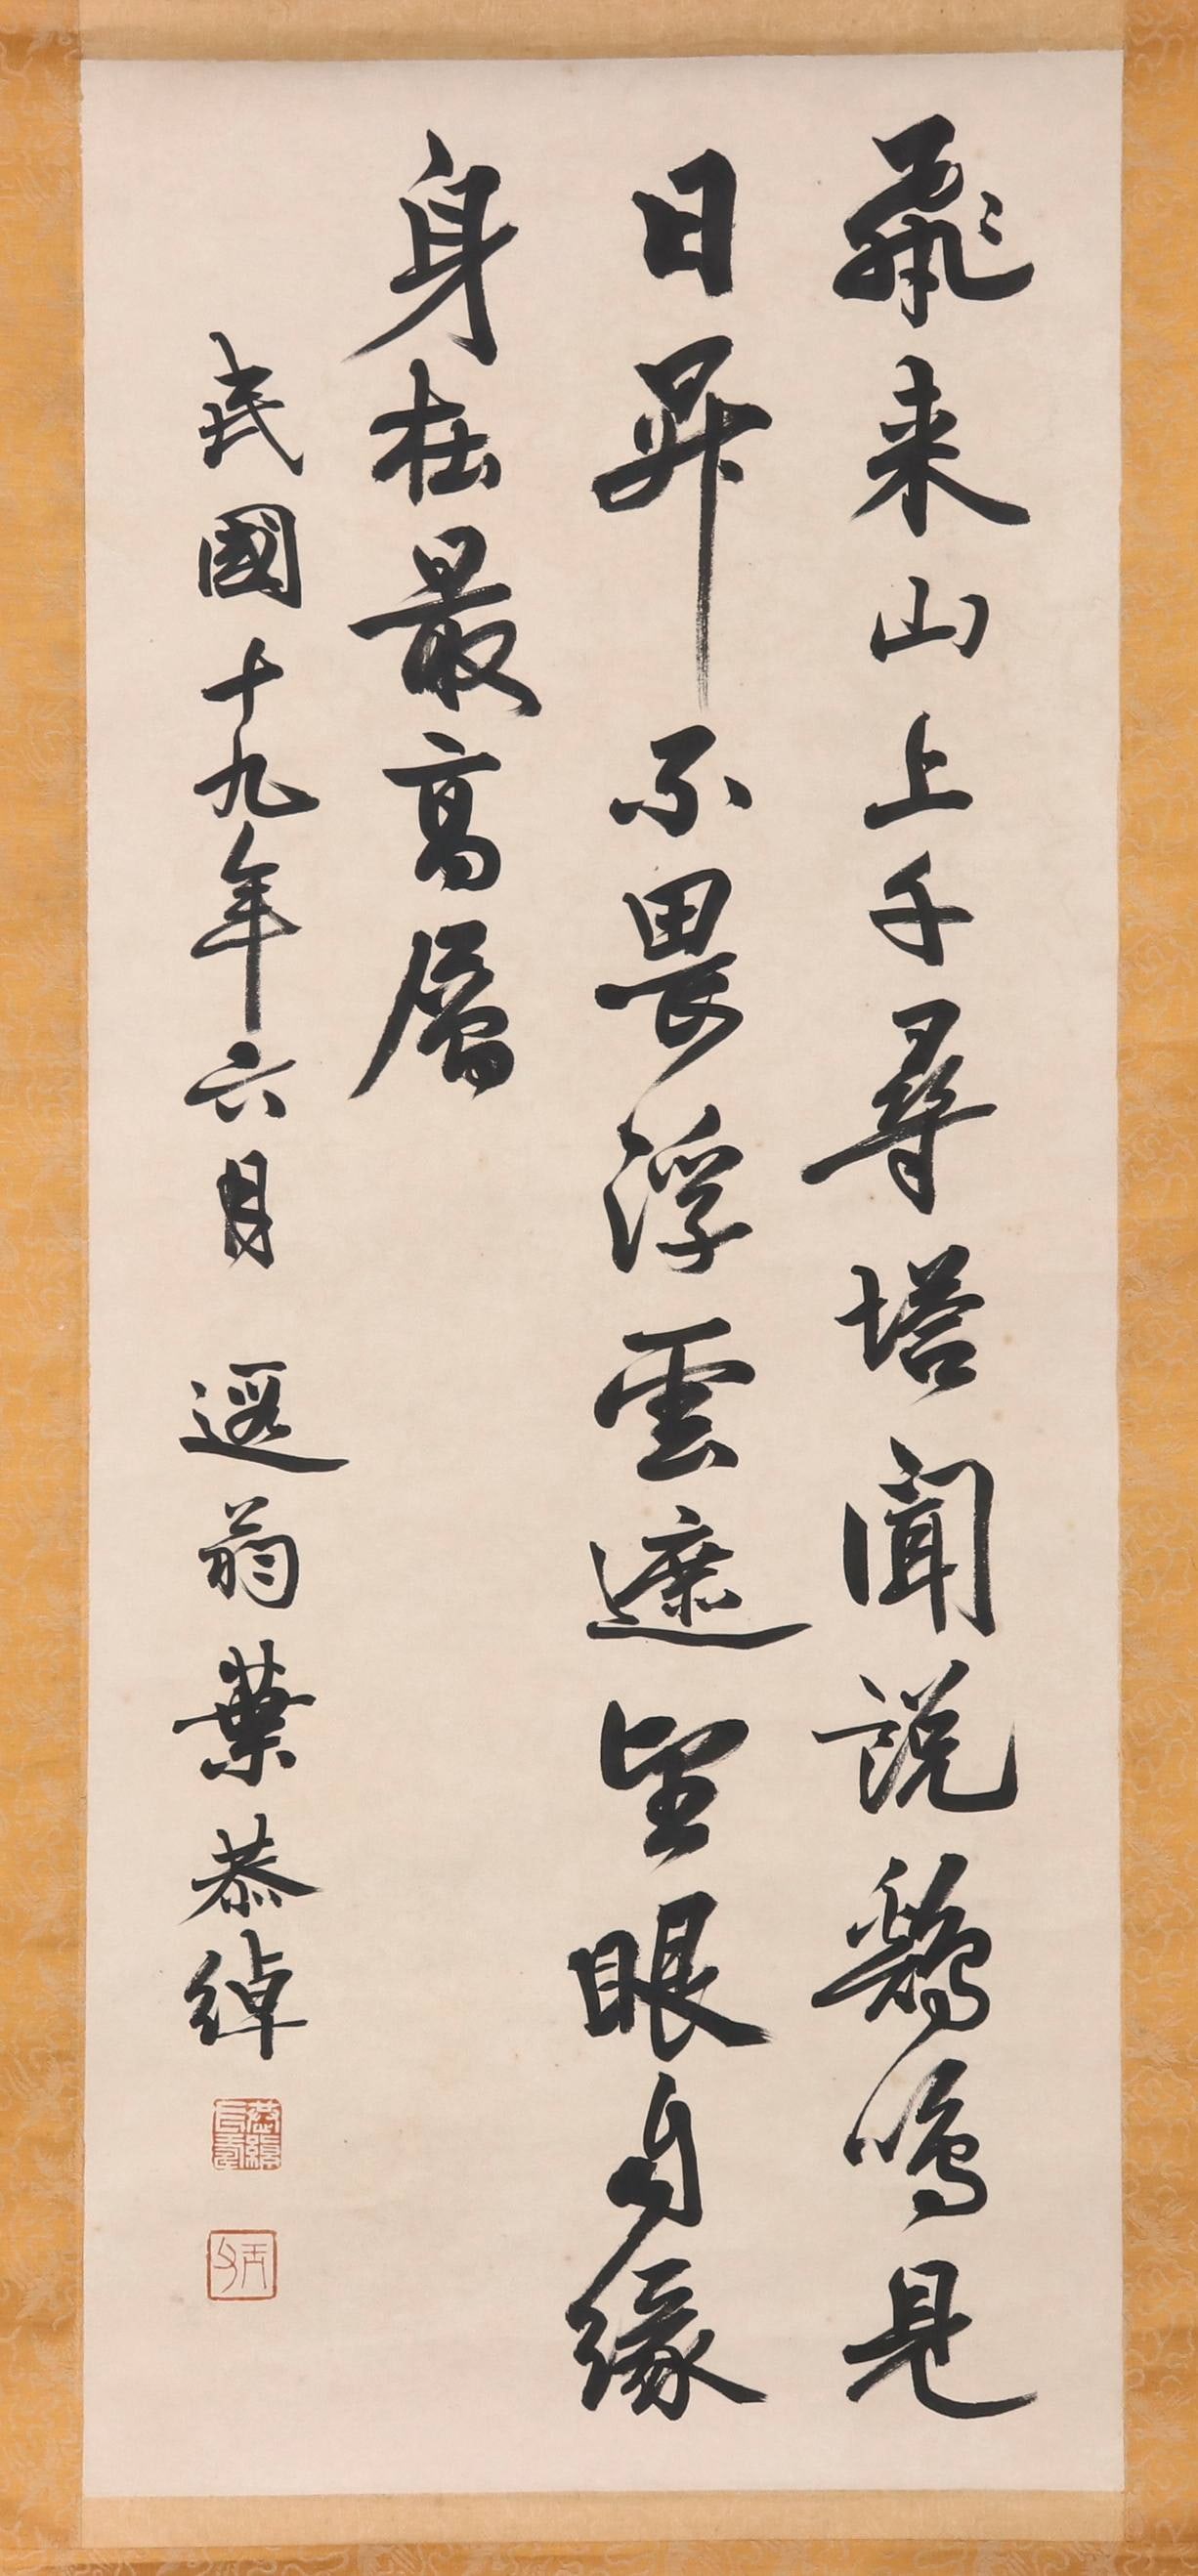 飛来山上千尋塔聞説鷄鳴見
日昇不畏浮雲遮望眼自緣
身在最高層
民國十九年六月 遐翁葉恭綽